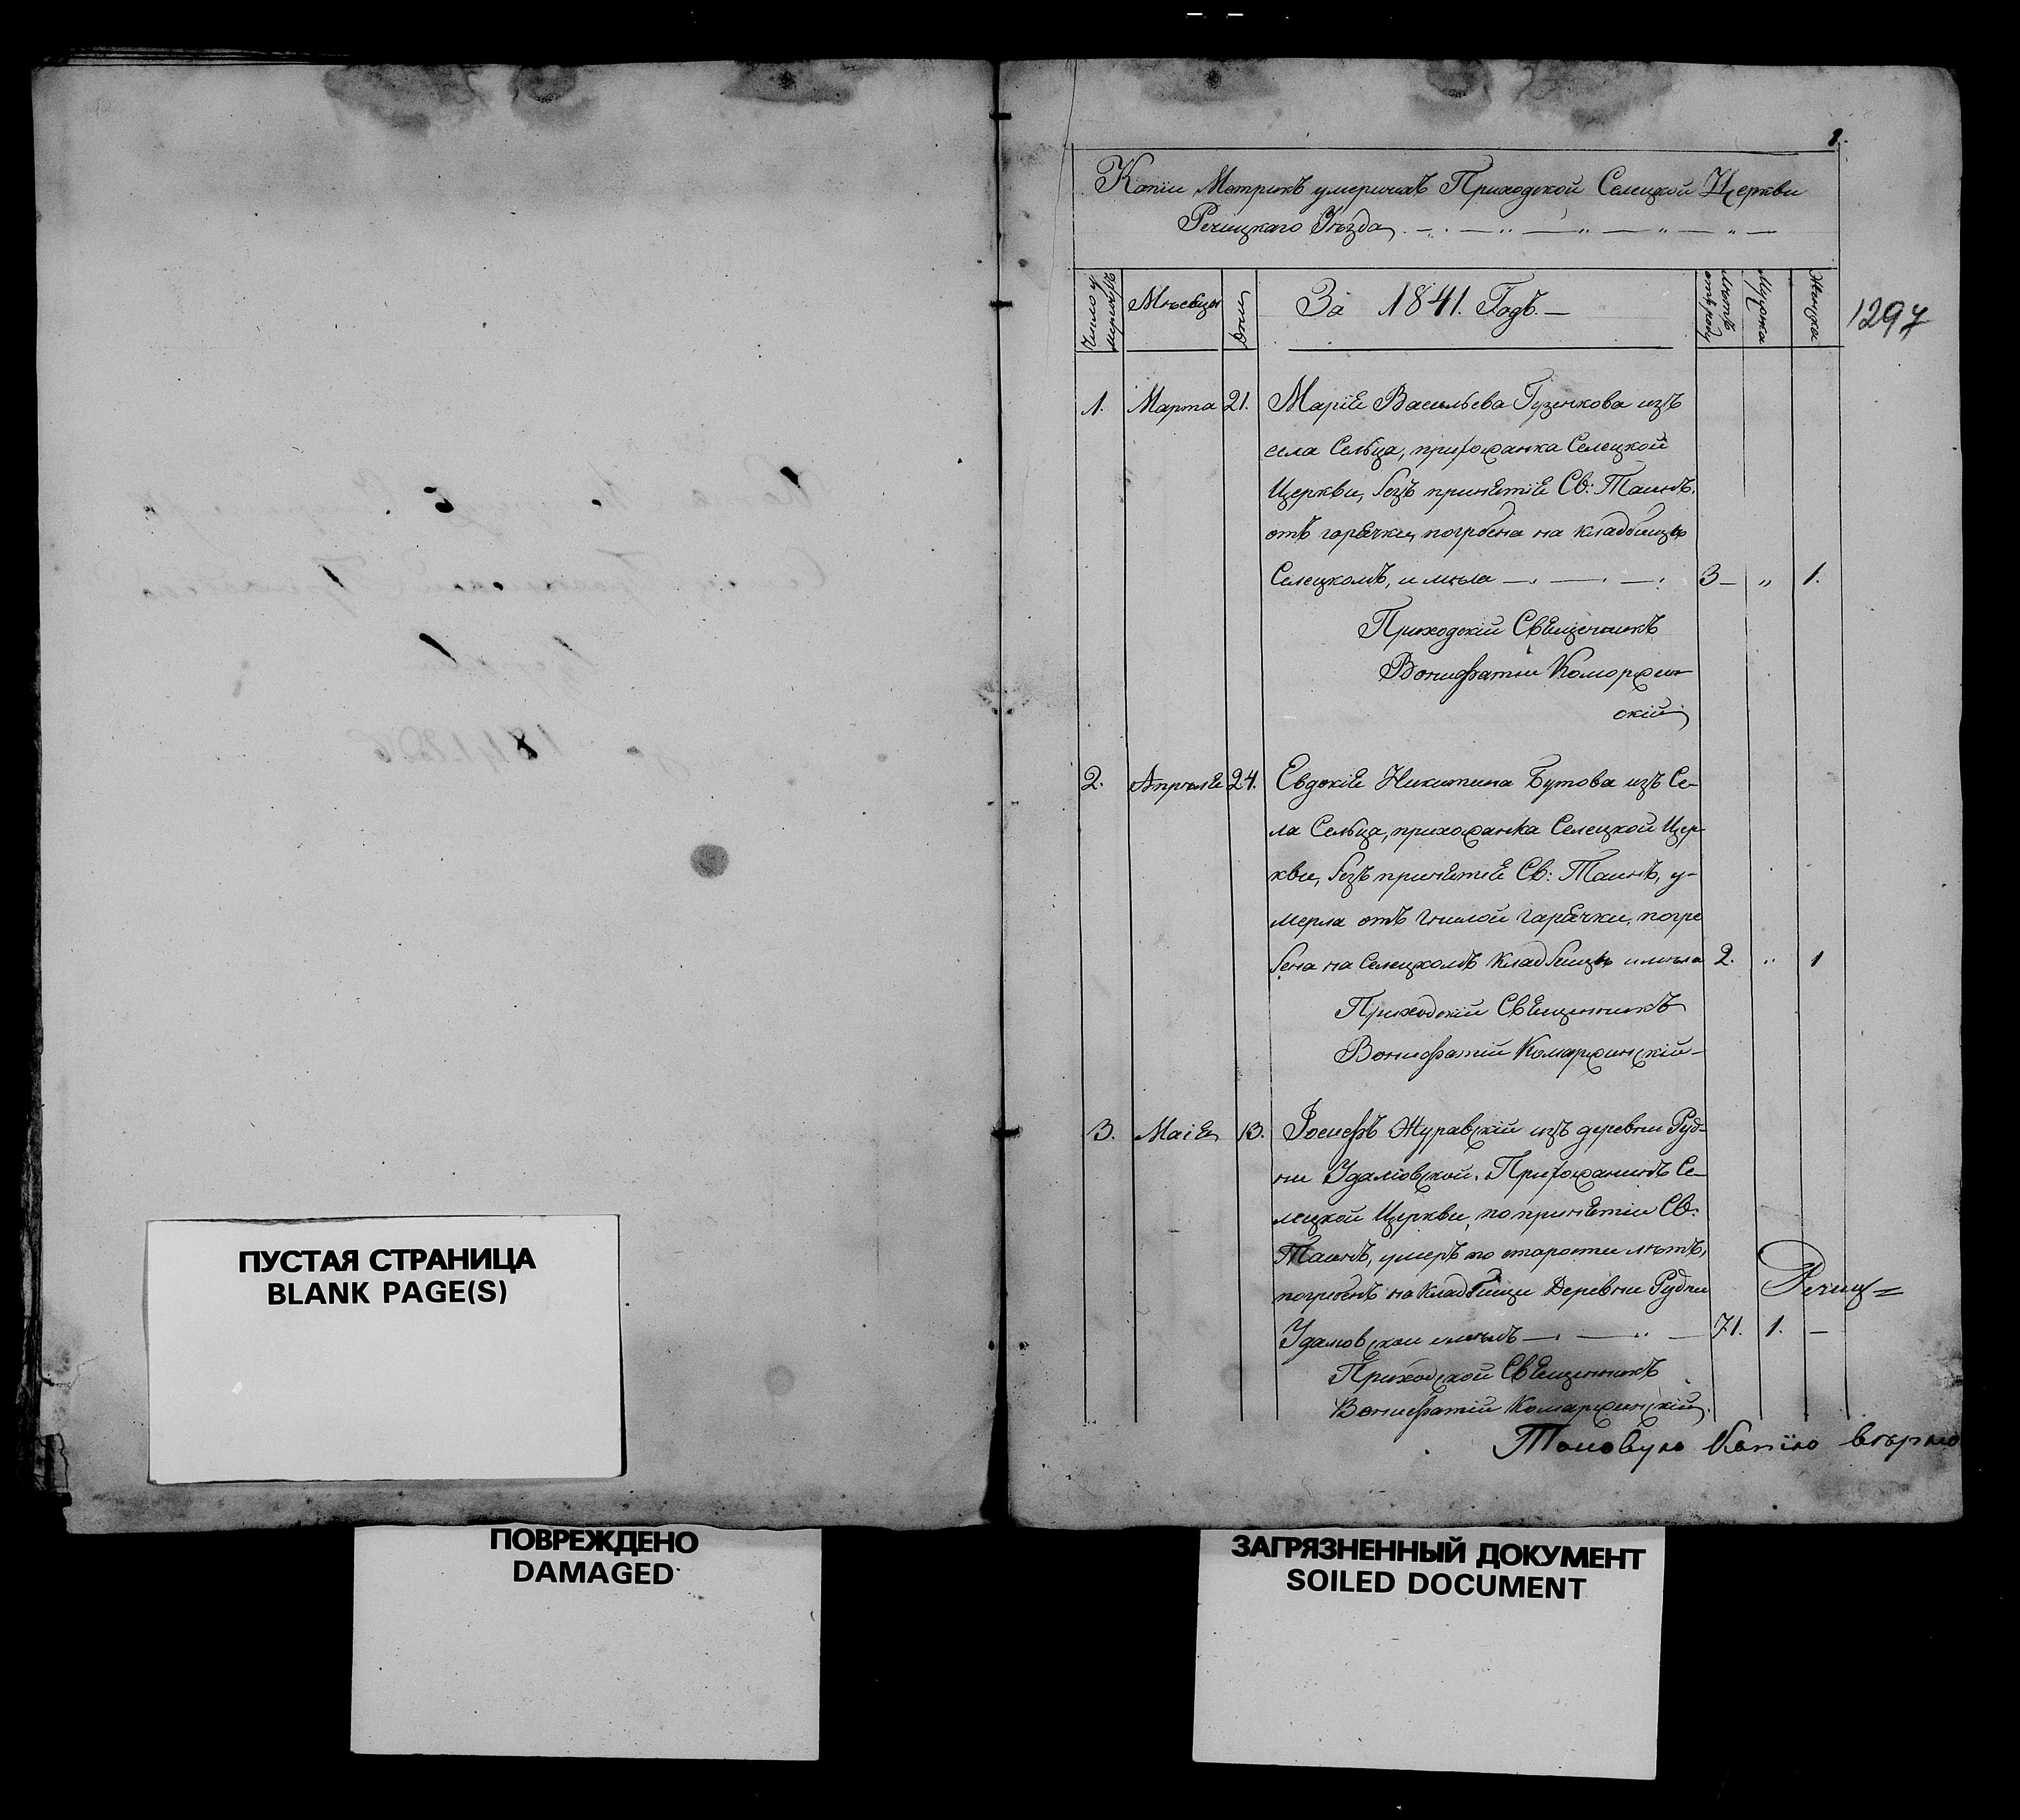 1.
Копіи Метрикъ умершихъ Приходской Селецкой Церкви
Речицкаго Уѣзда
Число умершихъ
Мѣсецы
Дни
За 1841. Годъ.
лѣтъ отъ роду
Мужска
Женска
1297
1. Марта 21. Марія Васильева Гузенкова изъ
села Сельца, прихожанка Селецкой
Церкви, безъ принятія Св: Таинъ,
отъ горячки, погрбена на кладбищѣ
Селецкомъ, имѣла 3 „ 1.
Приходскій Священникъ
Вонифатій Коморжин-
скій
2. Апрѣля 24. Евдокія Никитина Бутова изъ Се-
ла Сельца, прихожанка Селецкой Цер-
кви, безъ принятія Св: Таинъ, у-
мерла отъ гнилой гарячки, погре
бена на Селецкомъ Кладбищѣ имѣла 2. „ 1
Приходскій Священникъ
Вонифатій Комаржинскій
3. Маія 13. Іосифъ Журавскій изъ деревни Руд-
ни Удалювской. Прихожанинъ Се-
лецкой Церкви, по принятіи Св:
Таинъ, умеръ по старости лѣтъ,
погребенъ на кладбищи Деревни Рудни
Удалювской имѣлъ 71. 1. —
Приходской Священникъ
Вонифатій Комаржинскій
Речиц=
Таковую Копію вѣрно
ПУСТАЯ СТРАНИЦА
BLANK PAGE(S)
ПОВРЕЖДЕНО
DAMAGED
ЗАГРЯЗНЕННЫЙ ДОКУМЕНТ
SOILED DOCUMENT